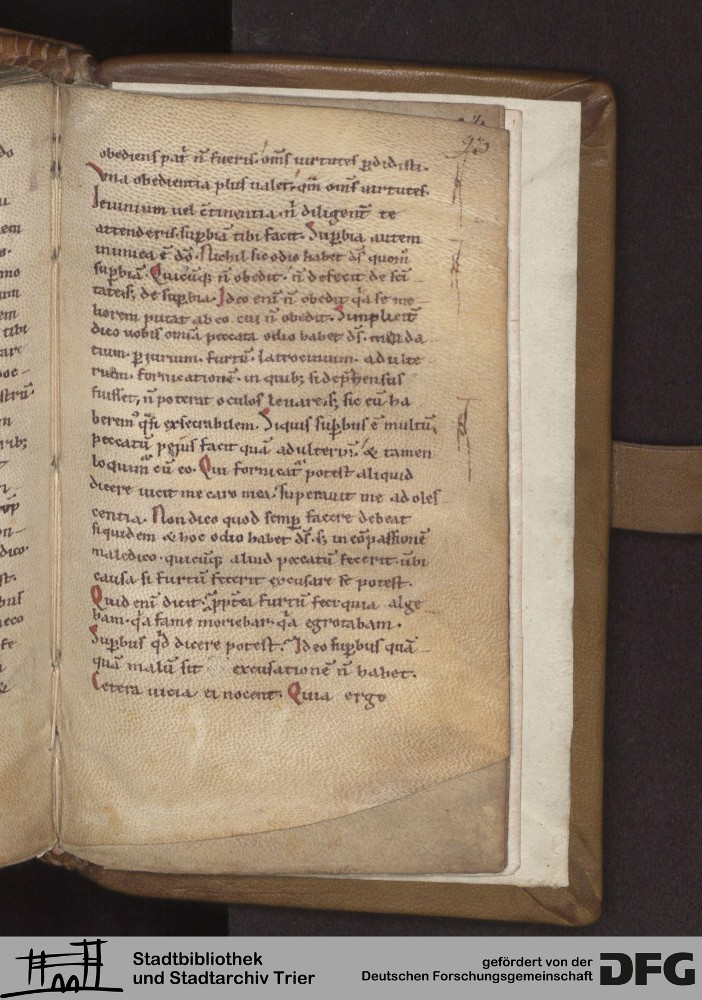 93
obediens pat̄ n̄ fueris. om̄s uirtutes ꝑdidisti.
Vna obedientia plus ualet, qm̄ om̄s uirtutes.
Ieiunium uel c̄tinentia n̄ diligent̄ te
attenderis. supbia tibi facit. Supbia autem
inimica ē dō. Nichil sic odio habet ds̄ quom̄
supbiā. Quicūq; n̄ obedit. n̄ defecit de sci
tate s; de supbia. Ideo enī n̄ obedit q̇a se me
liorem putat ab eo cui n̄ obedit. Simplicit̄
dico uobis omīa peccata odio habet ds̄. menda
cium. ꝑiurium. furtū. latrocinium. adulte
rium. fornicationē. in quib; si dephensus
fuisset, n̄ poterat oculos leuare. s; sic eū ha
berem̄ qͣsi exsecrabilem. Siquis supbus ē multū,
peccatū peius facit quā adulteriū. & tamen
loquim̄ cū eo. Qui fornicat̄ potest aliquid
dicere uicit me caro mea. superauit me adoles
centia. Non dico quod semꝑ facere debeat
siquidem & hoc odio habet ds̄. s; in cōpassionē
maledico. quicūq; aliud peccatū fecerit. ubi
causa si furtū fecerit excusare se potest.
Quid enī dicit. ꝓpt̄ea furtū feci quia alge
bam. q̇a fame moriebar. q̇a egrotabam.
Supbus qd̄ dicere potest. Ideo supbus quā
quā malū sit excusationē n̄ habet.
Cetera uicia ei nocent. Quia ergo
Stadtbibliothek
und Stadtarchiv Trier
gefördert von der
Deutschen Forschungsgemeinschaft
DFG